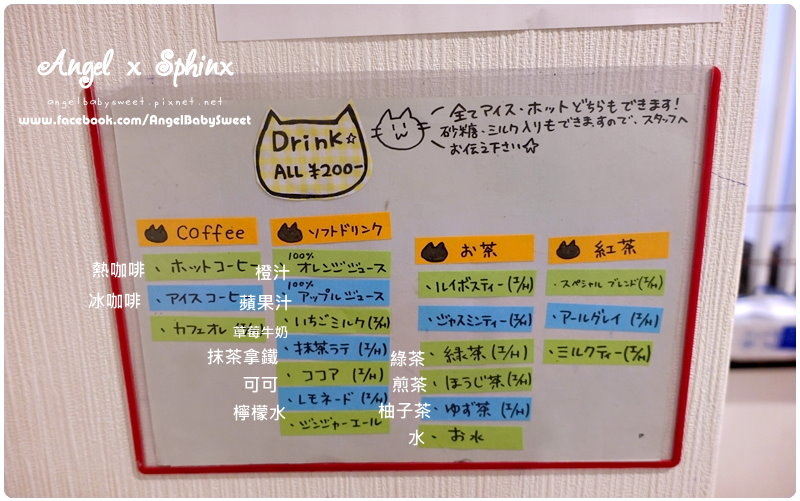 Angel x Sphinx
angelbabysweet.pixnet.net
www.facebook.com/AngelBabySweet
Drink☆
ALL ¥200-
全てアイス・ホットどちらもできます!
砂糖・ミルク入りもできますので、スタッフへ
お伝え下さい☆
Coffee
熱咖啡
・ホットコーヒー
冰咖啡
・アイスコーヒー
・カフェオレ
ソフトドリンク
橙汁
100%
オレンジジュース
蘋果汁
100%
アップルジュース
・いちごミルク(I/H)
草莓牛奶
抹茶拿鐵
・抹茶ラテ(I/H)
可可
・ココア(I/H)
檸檬水
・レモネード(I/H)
・ジンジャーエール
お茶
・ルイボスティー(I/H)
・ジャスミンティー(I/H)
綠茶
・緑茶(I/H)
煎茶
・ほうじ茶(I/H)
柚子茶
・ゆず茶(I/H)
水
・お水
紅茶
・スペシャルブレンド(I/H)
・アールグレイ(I/H)
・ミルクティー(I/H)